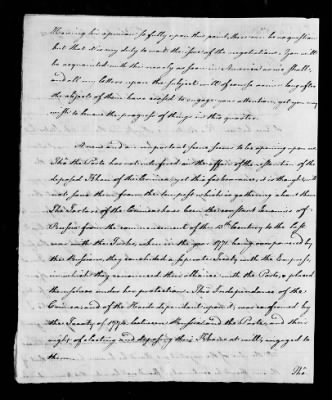 Having his opinion so fully upon this point, there can be no question
but that it is my duty to wait the issue of the negotiations. You will
be acquainted with this nearly as soon in America as we shall,
and all my letters upon the subject will of course arrive long after
the objects of them have ceased to engage your attention, yet you may
wish to know the progress of things in this quarter.
A new and an important scene seems to be opening upon us
Tho' the Porte has not interfered in the affair of the restoration of the
deposed Khan of the Crimea, yet this forbearance, it is thought, will
not save them from the tempest which is gathering about them
The Tartars of the Crimea have been the constant Enemies of
Russia from the commencement of the 15th Century to the last
war with the Turks, when in the year 1771 being conquered by
the Russians, they concluded a seperate Treaty with the Empress,
in which they renounced their Alliance with the Porte, & placed
themselves under her protection. This Independence of the
Crimea and of the Hords dependent upon it, was confirmed by
the Treaty of 1774 between Russia and the Porte, and the
right of electing and deposing their Khans at will, engaged to
them.
The